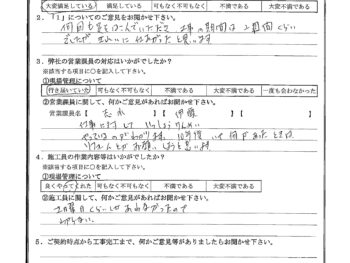 大変満足している 満足している 可も無く不可も無く 不満である 大変不満である
2.「1」についてのご意見をお聞かせ下さい。
工事の期間は2週間くらい
でしたが きれいに 仕上がったと思います
3. 弊社の営業課員の対応はいかがでしたか?
※該当する項目に○を記入して下さい。
①現場管理について
行き届いていた 可も無く不可も無く 不満である 大変不満である 一度も会わなかった
②営業課員に関して、何かご意見があればお聞かせ下さい。
営業課員名【 】【 伊藤 】【
仕事に対して いっしょうけんめい
やっているのがわかります。10年後 何かあったときは
お願いしようと思います
4. 施工員の作業内容等はいかがでしたか?
※該当する項目に○を記入して下さい。
①現場管理について
良くやってくれた 可も無く不可も無く 不満である 大変不満である
②施工員に関して、何かご意見があればお聞かせ下さい。
土曜日くらいしか あわなかったので
わからない。
5. ご契約時点から工事完工まで、何かご意見等がありましたらお聞かせ下さい。